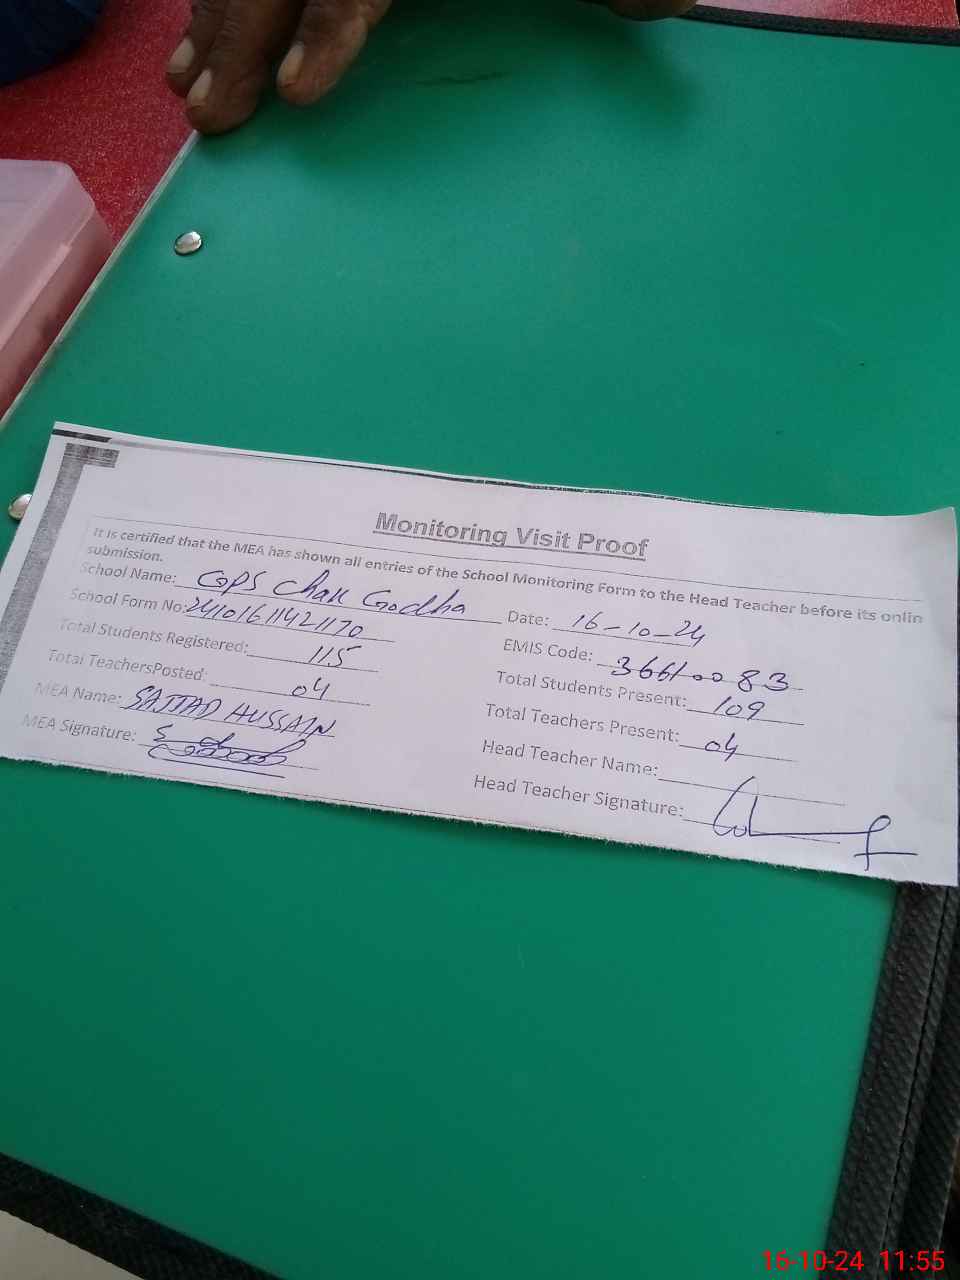 Monitoring Visit Proof
It is certified that the MEA has shown all entries of the School Monitoring Form to the Head Teacher before its onlin
submission.
School Name: GPS Chak Godha Date: 16-10-24
School Form No: 24101611421170 EMIS Code: 36610083
Total Students Registered: 115 Total Students Present: 109
Total TeachersPosted: 04 Total Teachers Present: 04
MEA Name: SAJJAD HUSSAIN Head Teacher Name:
MEA Signature: Head Teacher Signature:
16-10-24 11:55